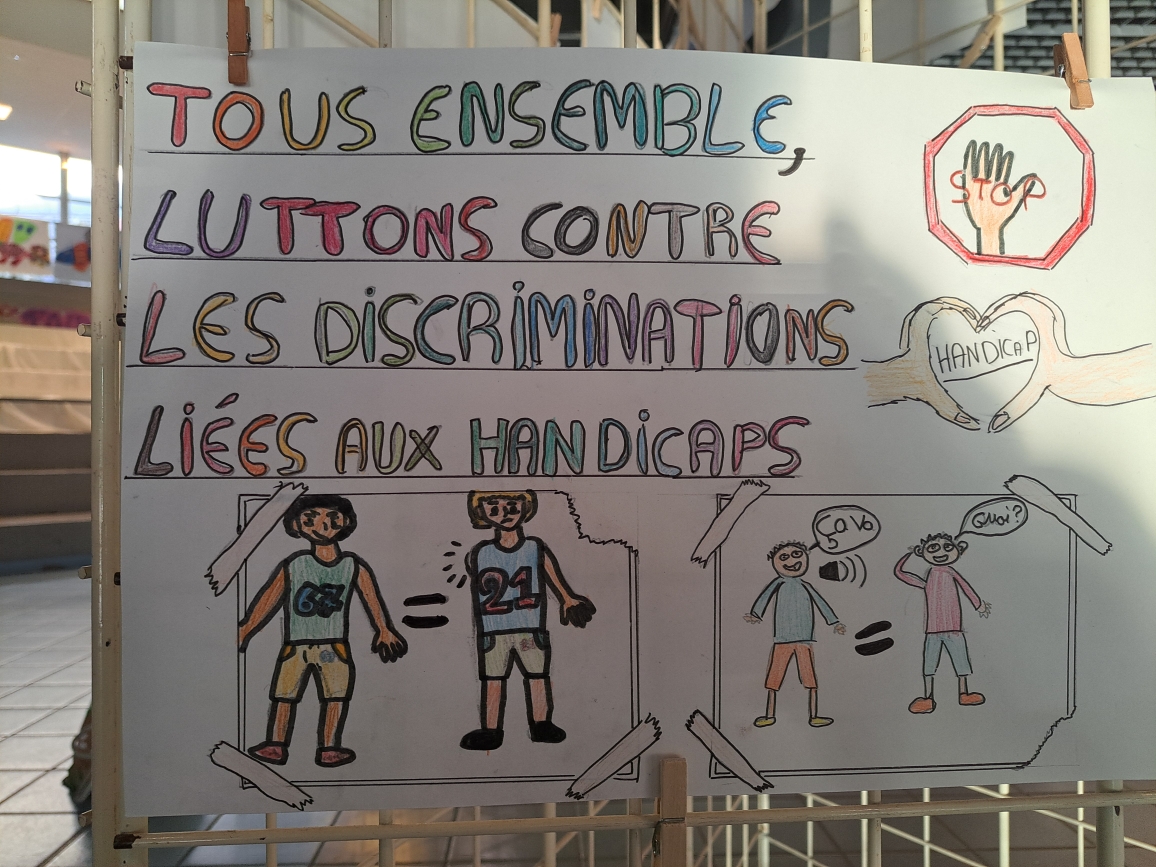 TOUS ENSEMBLE,
LUTTONS CONTRE
LES DISCRIMINATIONS
LIÉES AUX HANDICAPS
STOP
HANDICAP
67
21
ça va
Quoi?